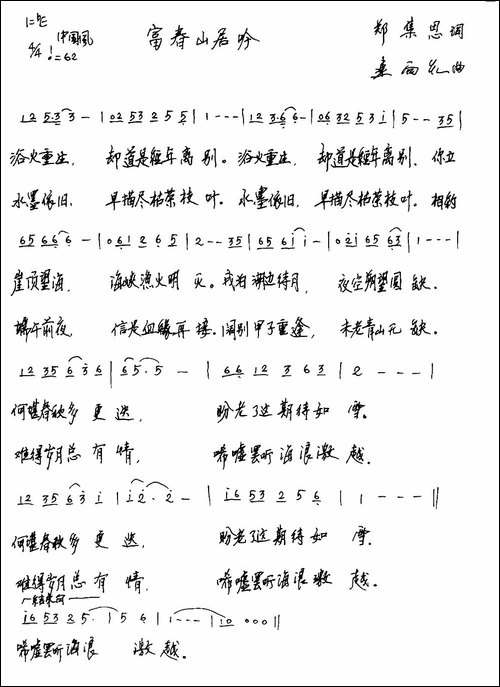 1=♭E 中国風 富春山居吟 郑集思词
4/4 ♩=62 曲
1 2 5·3 3 - | 0 2 5 3 2 5 5 | 1 - - - | 1 2 3·6 6 - | 0 6 3 2 5 3 i | 5 - - 3 5 |
浴火重生， 却道是经年离别。浴火重生， 却道是经年离别。你立
水墨依旧， 早描尽枯荣枝叶。水墨依旧，早描尽枯荣枝叶。相约
6 5 6 6 6 - | 0 6 1 2 6 5 | 2 - - 3 5 | 6 5 6 i i - | 0 2 i 6 5 6 3 | 1 - - - |
崖顶望海， 海峡渔火明灭。我在湖边待月， 夜空朔望圆缺。
端午前夜 信是血缘再接。阔别甲子重逢， 未老青山无缺。
1 2 3 5 6 3 6 | 6 5·5 - | 6 6 1 2 3 6 3 | 2 - - - |
何堪春秋多更迭， 盼老了这期待如雪。
难得岁月总有情， 唏嘘罢听海浪激越。
1 2 3 5 6 3 i | i 2·2 - | i 6 5 3 2 5 6 | 1 - - - ||
何堪春秋多更迭， 盼老了这期待如雪。
难得岁月总有情， 唏嘘罢听海浪激越。
结束句
i 6 5 3 2 5· | 5 6 | 1 - - - | i 0 0 0 0 ||
唏嘘罢听海浪 激越。